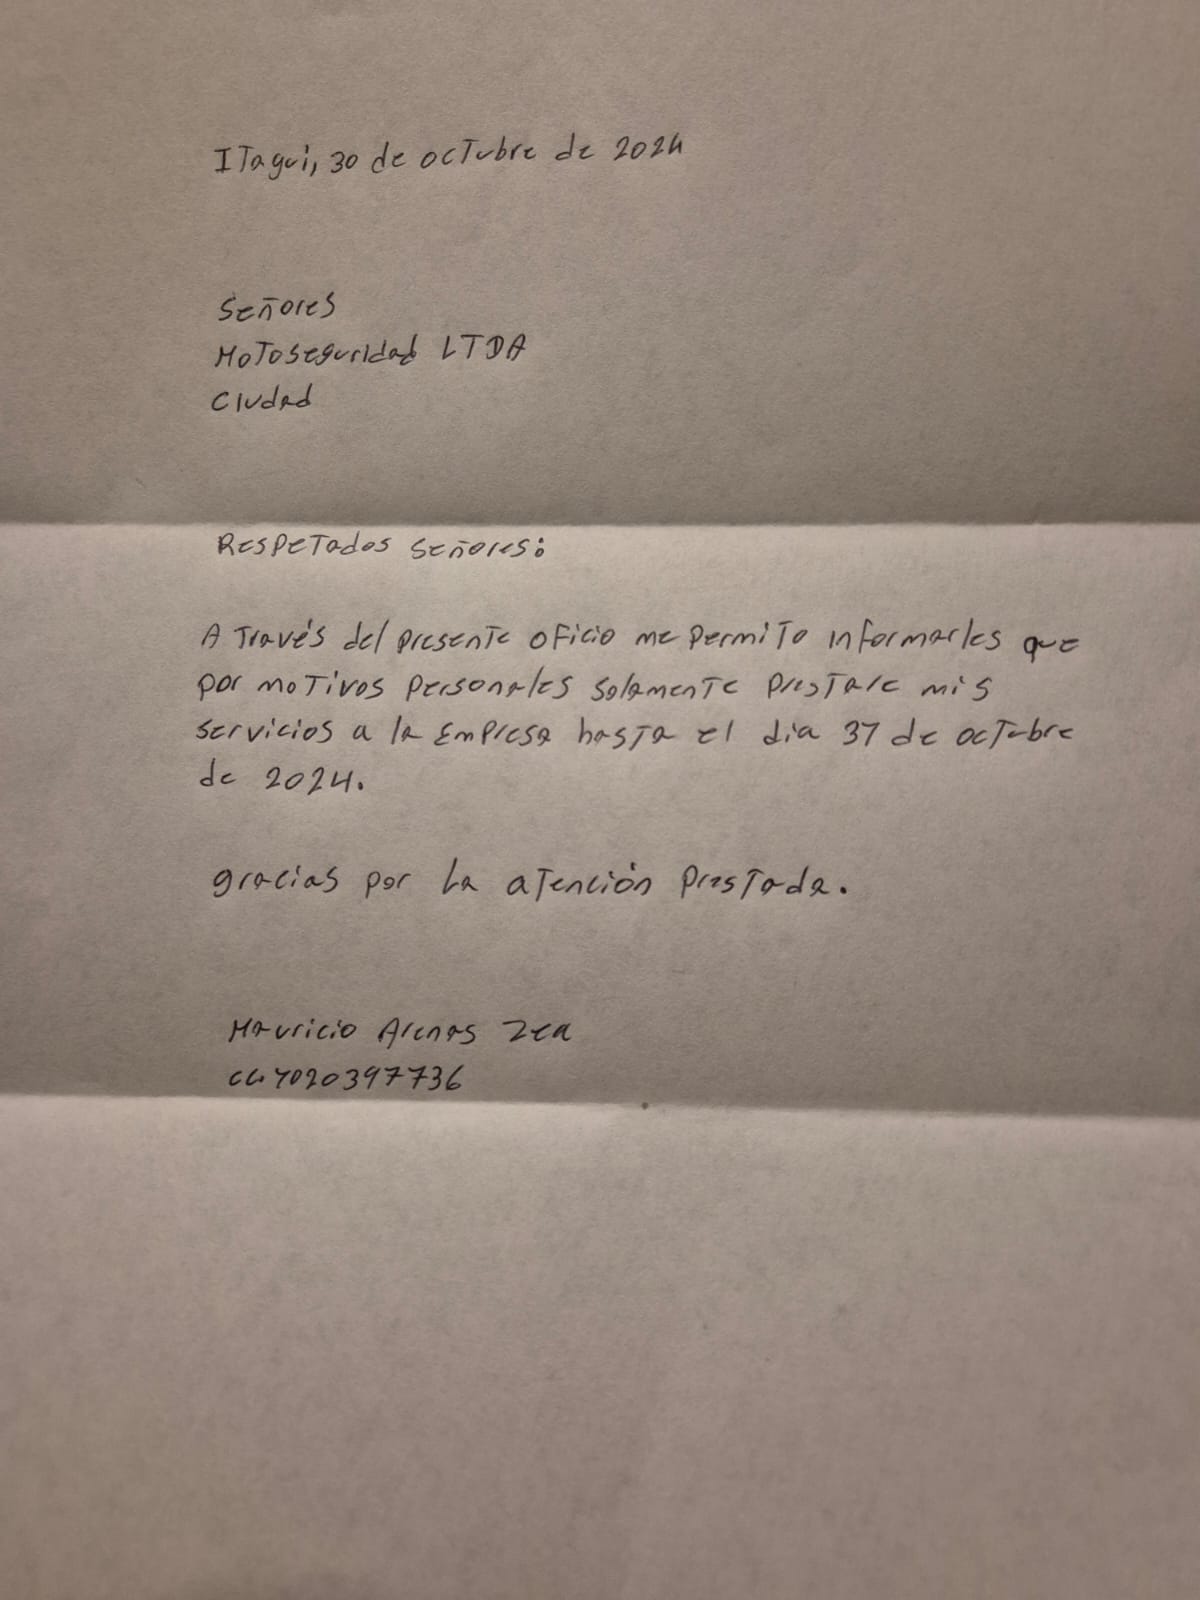 Itagui, 30 de octubre de 2024
Señores
Motoseguridad LTDA
Ciudad
Respetados señores:
A través del presente oficio me permito informarles que
por motivos personales solamente prestare mis
servicios a la Empresa hasta el dia 31 de octubre
de 2024.
gracias por la atención prestada.
Mauricio Arenas Zea
CC. 1020397736